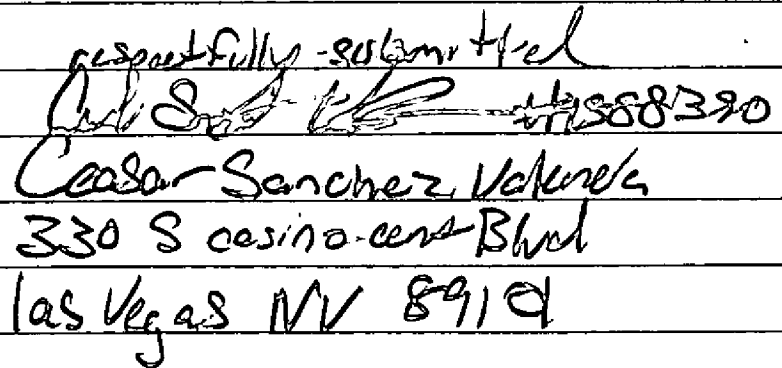 respectfully submitted
#1588390
Ceasar Sanchez Valencia
330 S casino cent Blvd
las Vegas NV 89101